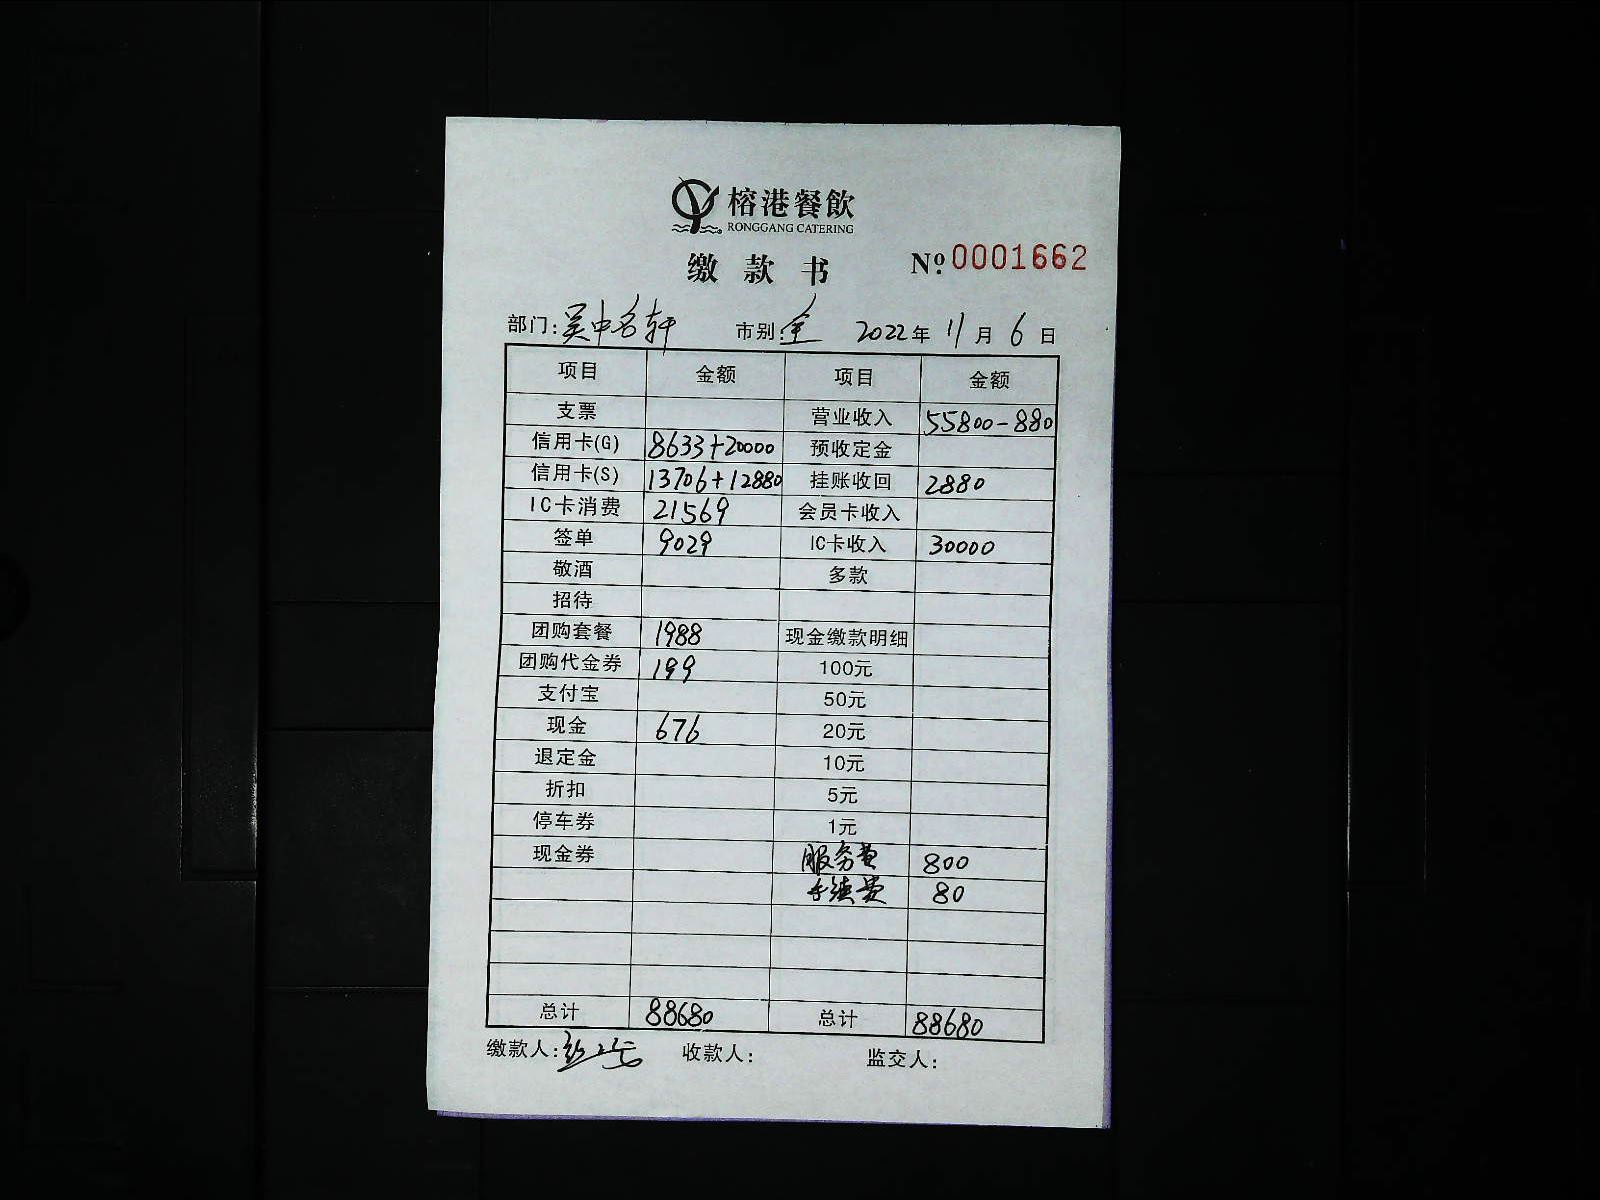 榕港餐飲
RONGGANG CATERING
缴款书 №0001662
部门:吴中名轩 市别:全 2022年11月6日
项目 金额 项目 金额
支票 营业收入 55800-880
信用卡(G) 8633+20000 预收定金
信用卡(S) 13706+12880 挂账收回 2880
IC卡消费 21569 会员卡收入
签单 9029 IC卡收入 30000
敬酒 多款
招待
团购套餐 1988 现金缴款明细
团购代金券 199 100元
支付宝 50元
现金 676 20元
退定金 10元
折扣 5元
停车券 1元
现金券 服务费 800
手续费 80
总计 88680 总计 88680
缴款人: 收款人: 监交人: